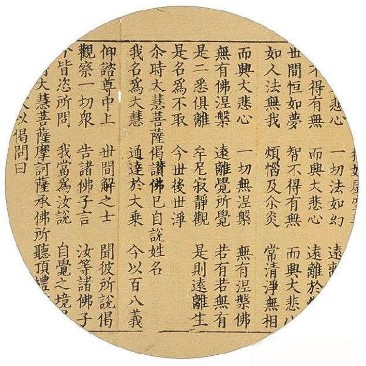 悲心 一切法如幻 遠離
不得有無 而興大悲心 遠離於
世間恒如夢 智不得有無 而興大悲心
如人法無我 煩惱及尒炎 常清淨無相
而興大悲心 一切無涅槃 無有涅槃佛
無有佛涅槃 遠離覺所覺 若有若無有
是二悉俱離 牟尼寂靜觀 是則遠離生
是名為不取 今世後世淨
尒時大慧菩薩偈讚佛已自說姓名
我名為大慧 通達於大乘 今以百八義
仰諮尊中上 世間解之士 聞彼所說偈
觀察一切衆 告諸佛子言 汝等諸佛子
今皆恣所問 我當為汝說 自覺之境
大慧菩薩摩訶薩承佛所聽頂禮
以偈問曰